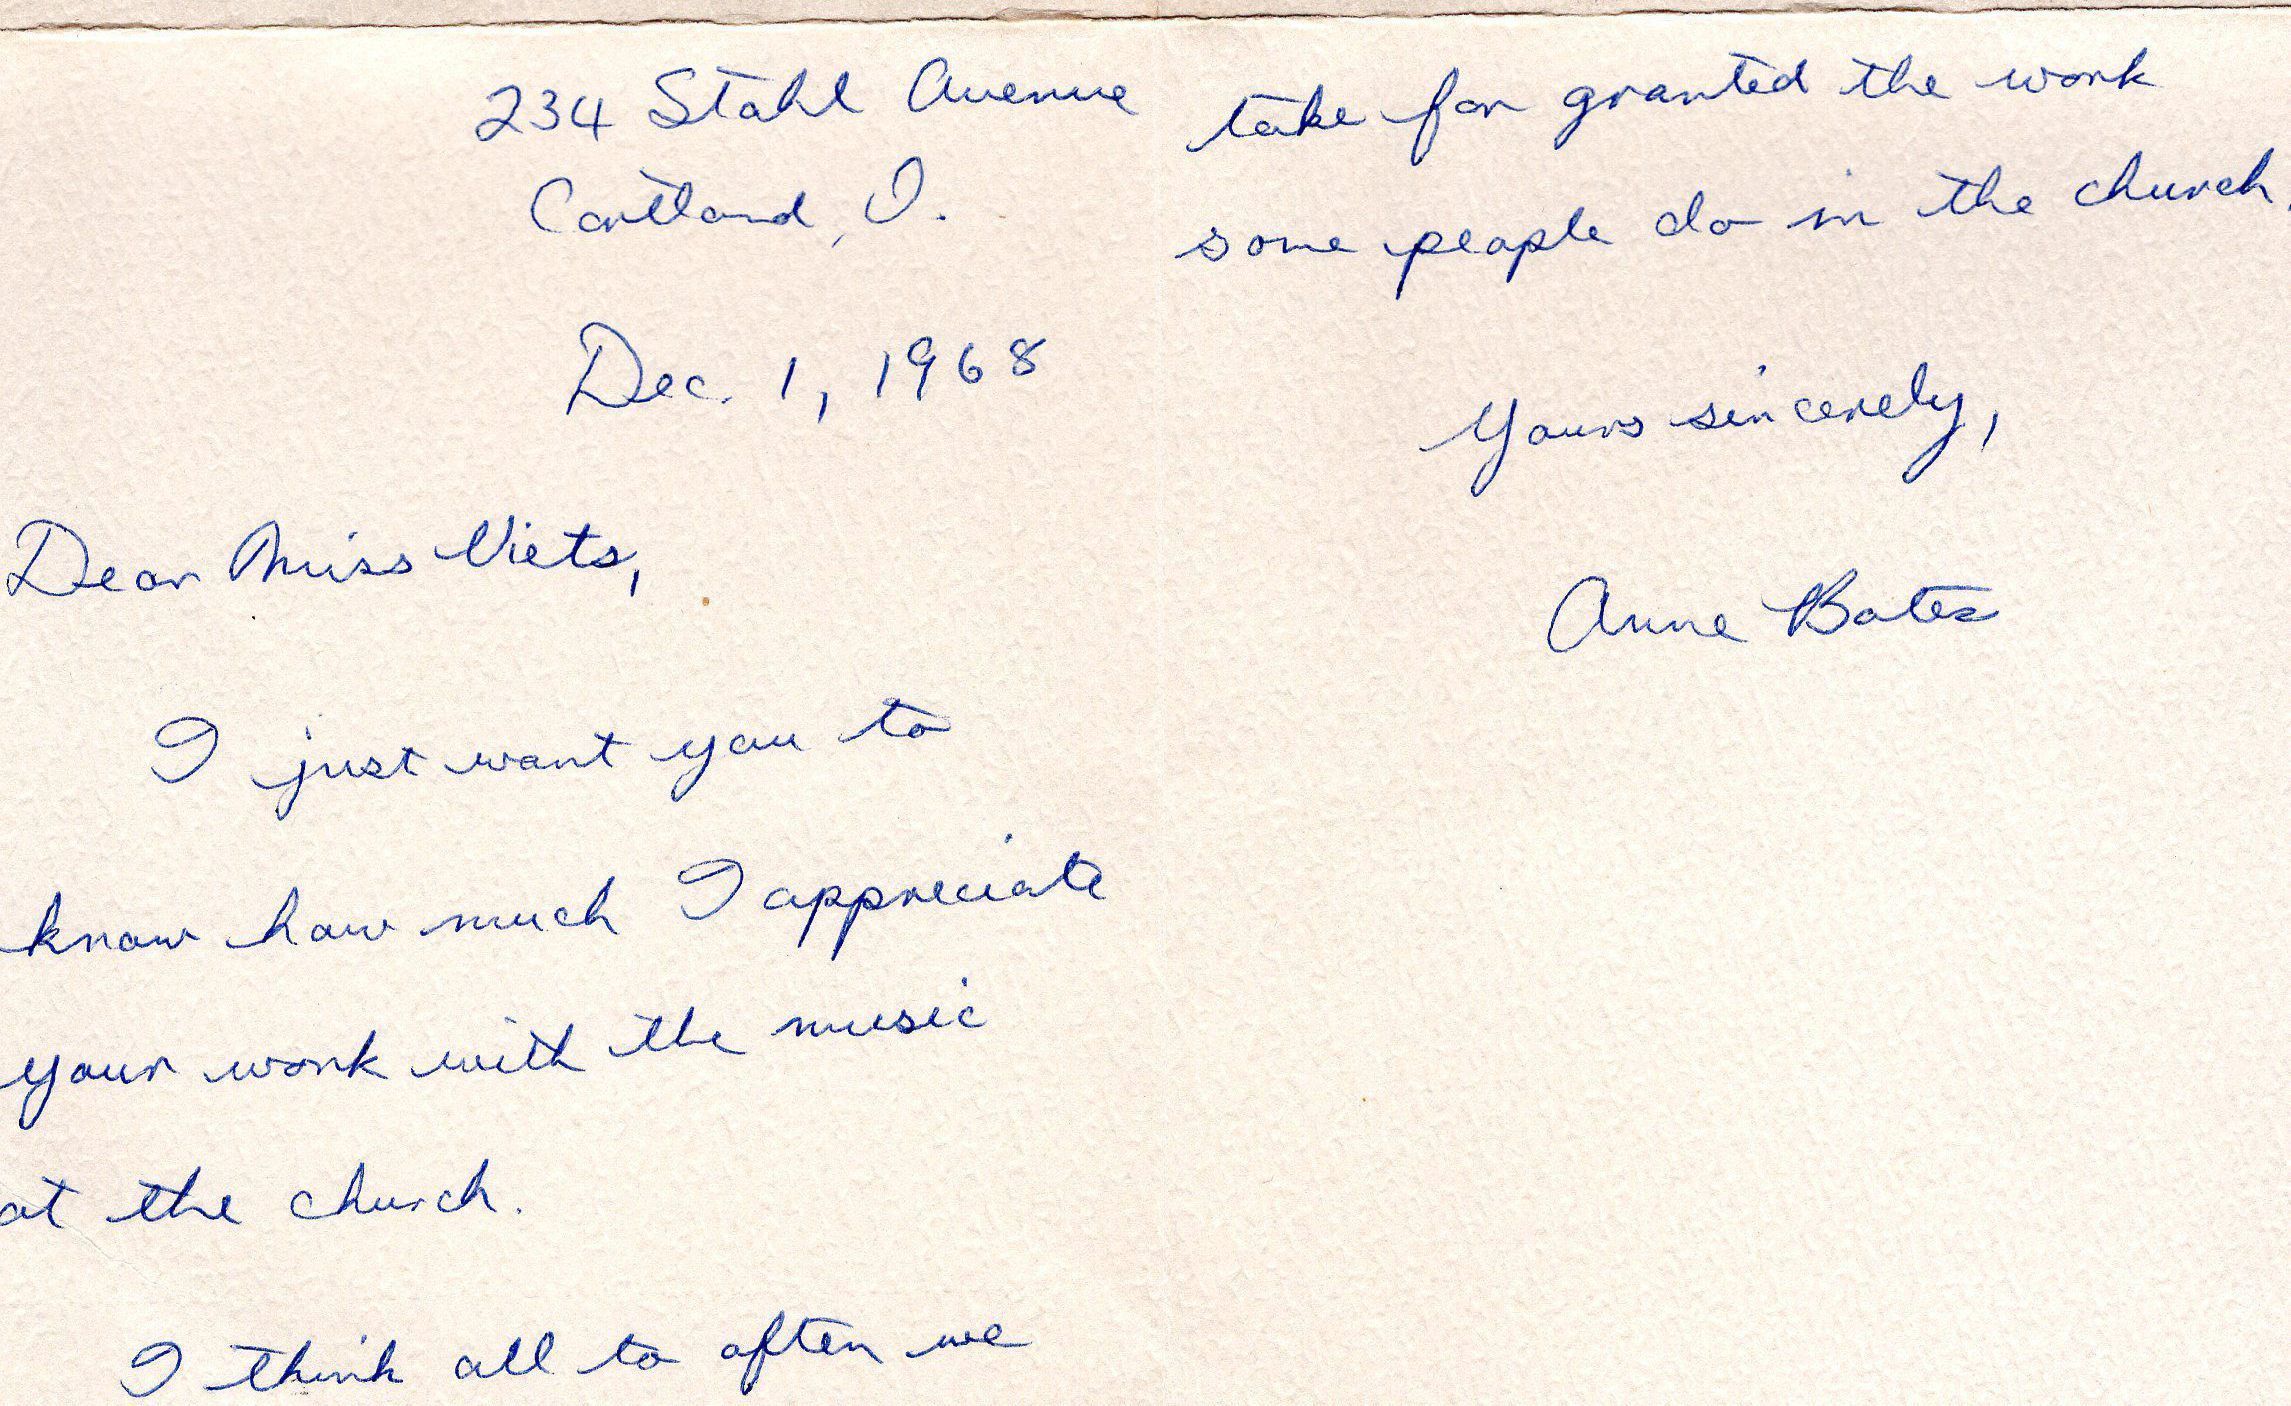 234 Stahl Avenue
Cortland, O.
Dec. 1, 1968
Dear Miss Viets,
I just want you to
know how much I appreciate
your work with the music
at the church.
I think all to often we
take for granted the work
some people do in the church.
Yours sincerely,
Anne Bates